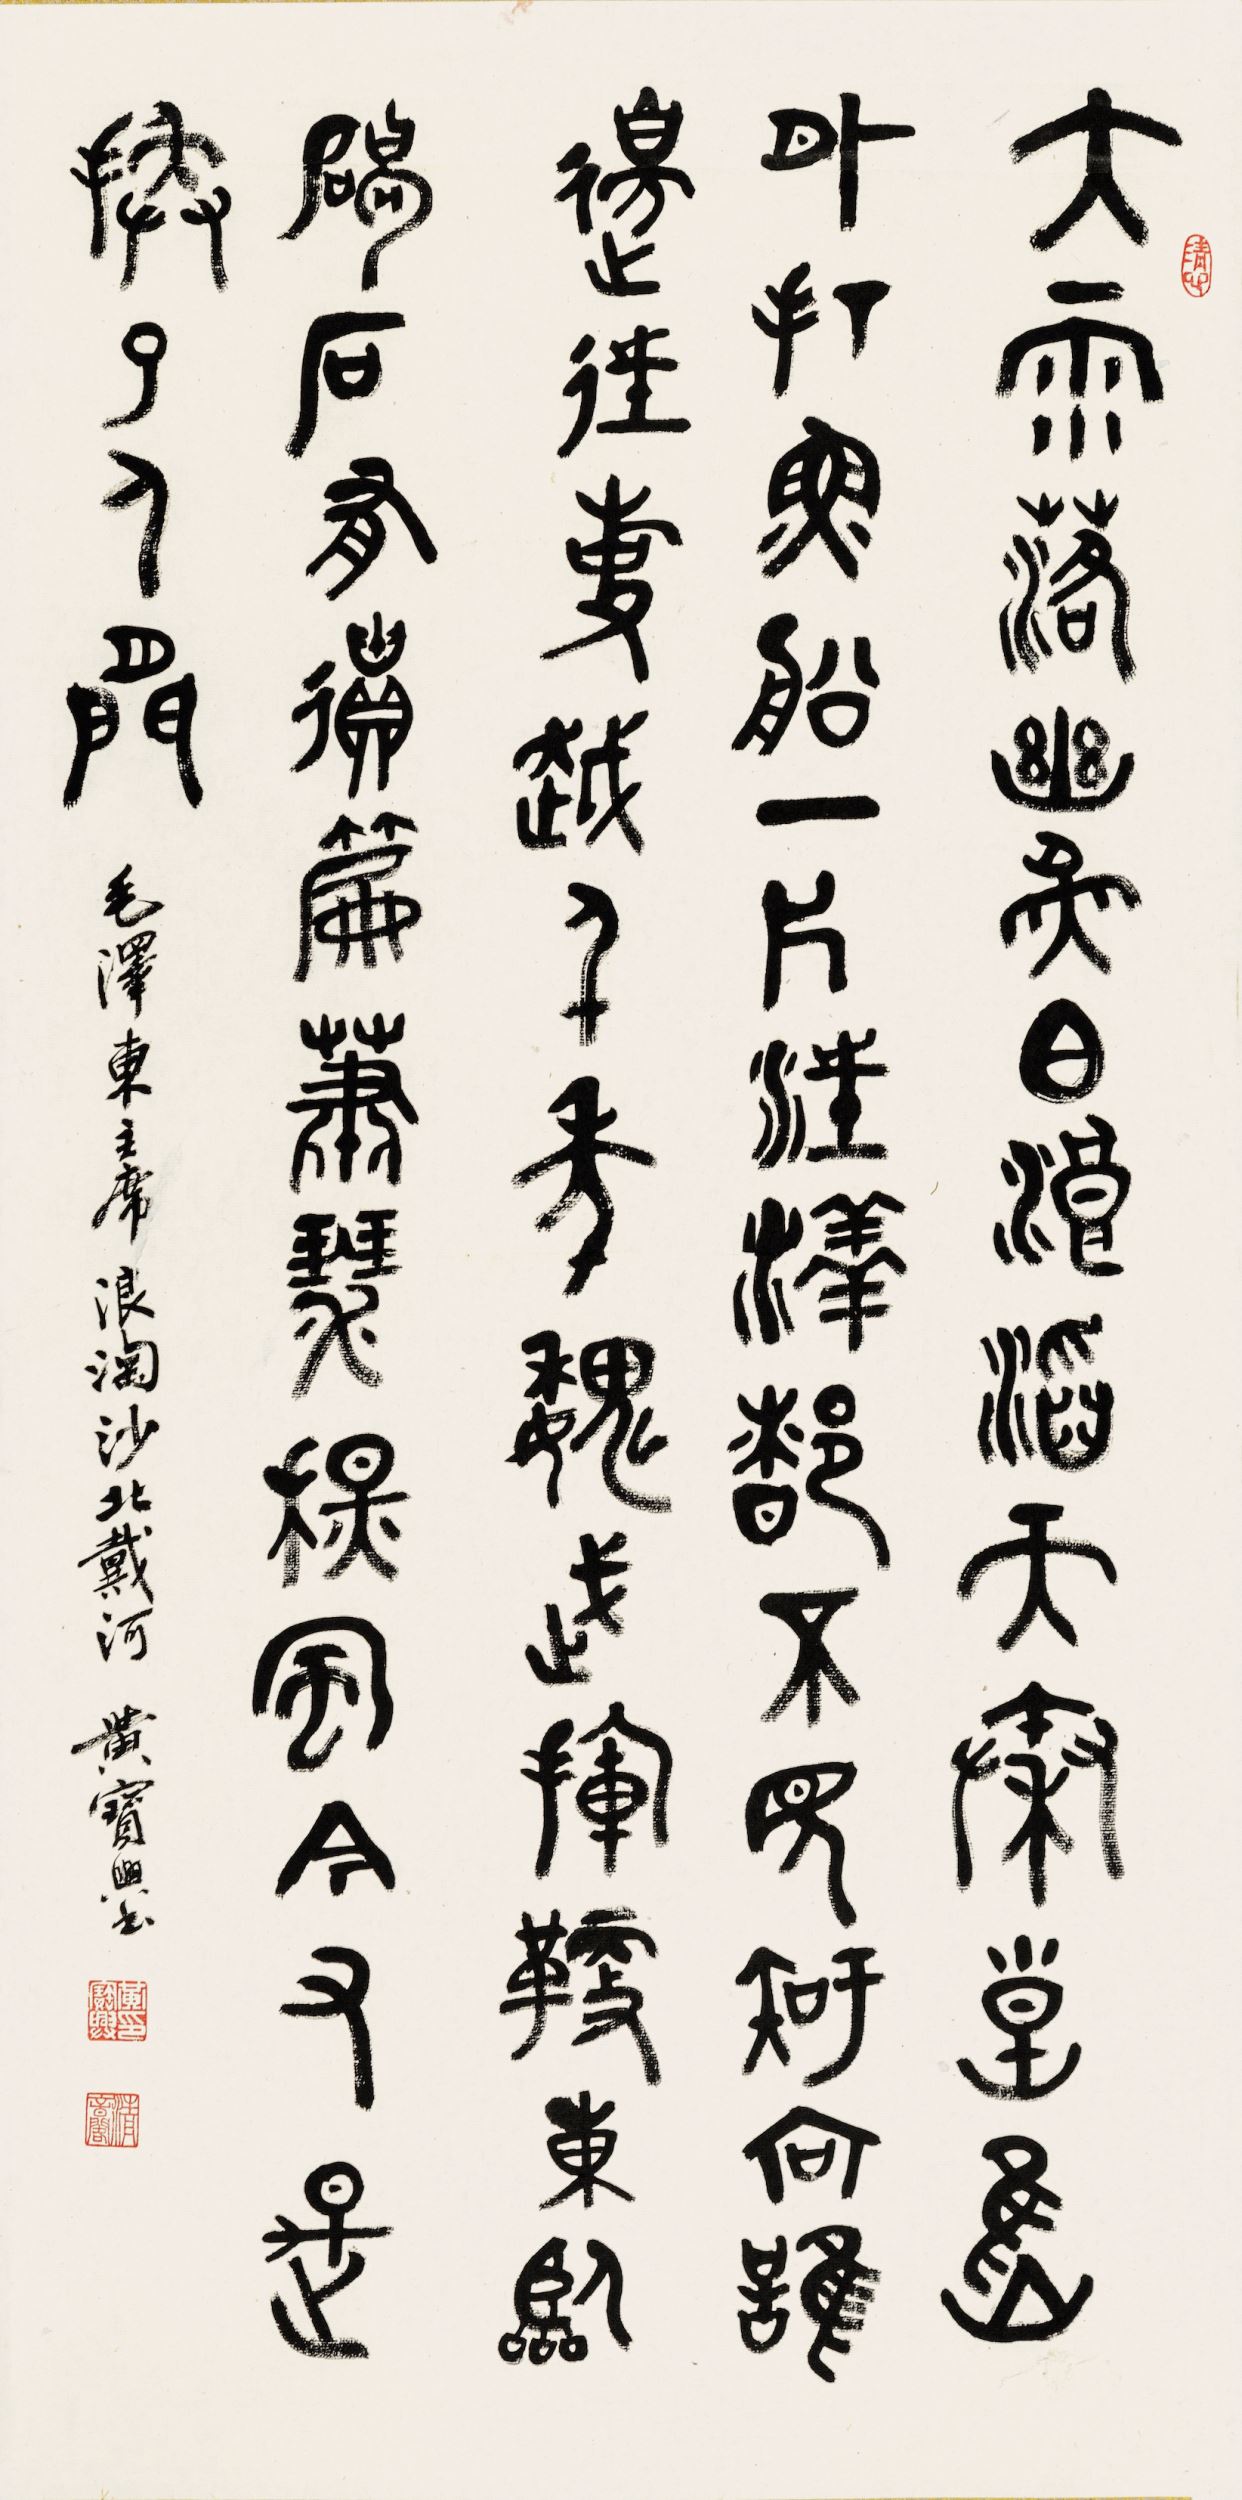 大雨落幽燕白浪滔天秦皇島
外打魚船一片汪洋都不見知向誰
邊往事越千年魏武揮鞭東臨
碣石有遺篇蕭瑟秋風今又是
換了人間
毛澤東主席浪淘沙北戴河 黃寶興書
清心
黃寶興印
清音閣